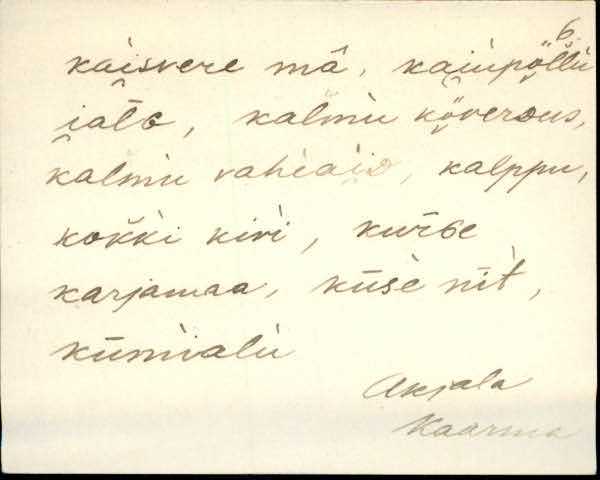 6.
kaisvere mâ, kaiupõllu
iałG, kalmu kõverdus,
kalmu vahiaid, kalppu,
kokki kivi, kurGe
karjamaa, küsè nìt,
kümialu
Akjala
Kaarma